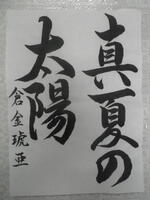 真夏の
太陽
倉金琥亜